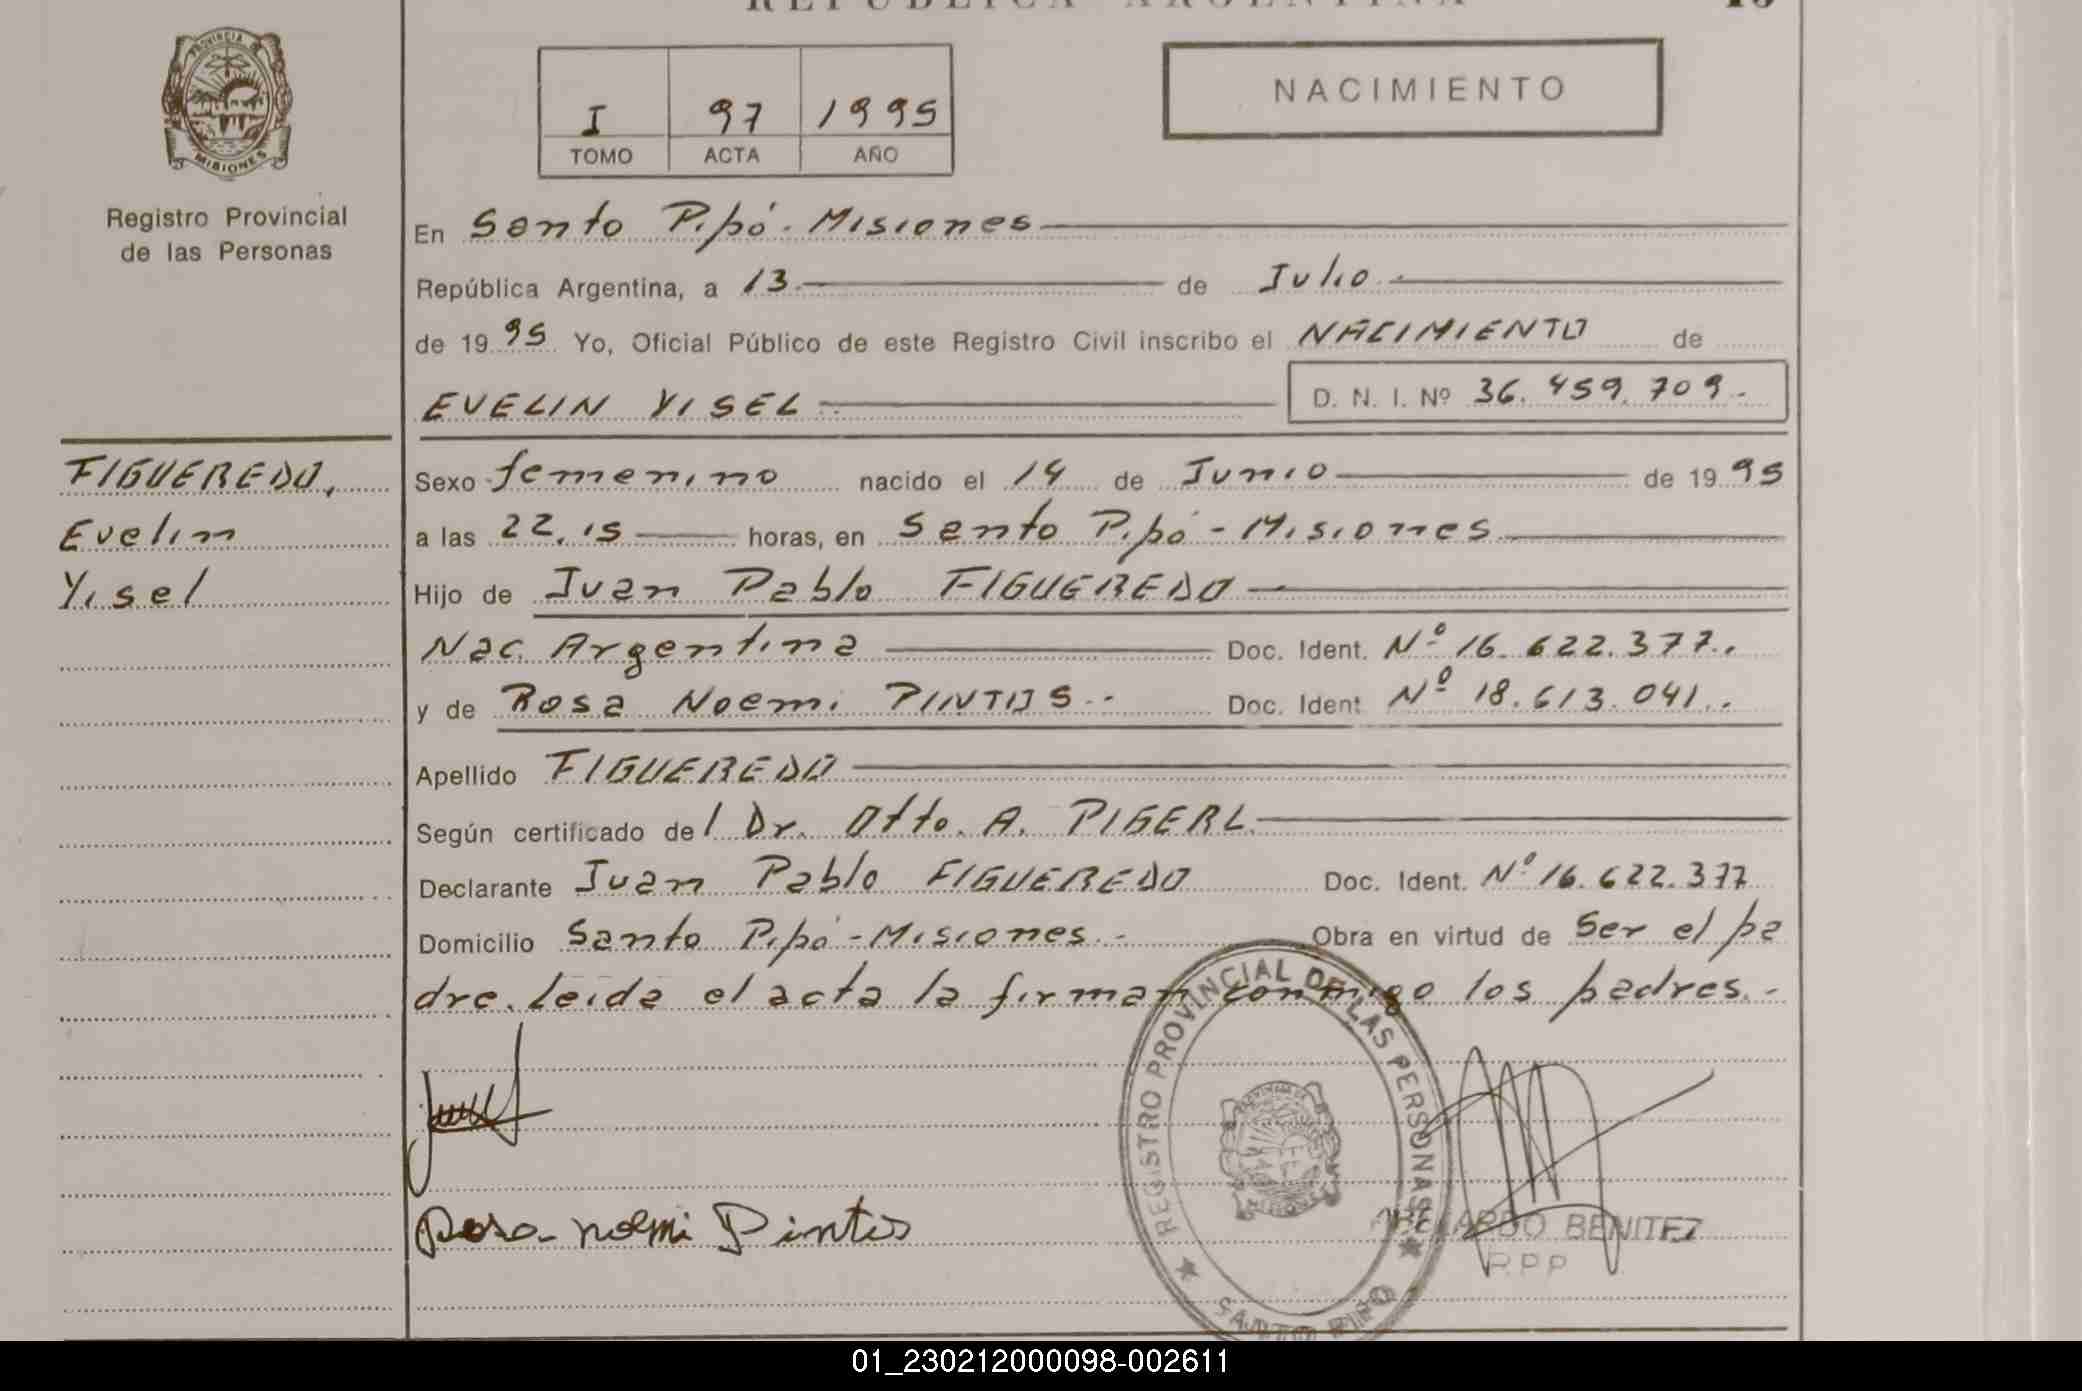 REPUBLICA ARGENTINA
PROVINCIA DE
MISIONES
Registro Provincial
de las Personas
I 97 1995
TOMO ACTA AÑO
NACIMIENTO
En Santo Pipó - Misiones
República Argentina, a 13 de Julio
de 1995 Yo, Oficial Público de este Registro Civil inscribo el NACIMIENTO de
EVELIN YISEL D. N. I. Nº 36.459.709.-
FIGUEREDO,
Evelin
Yisel
Sexo femenino nacido el 14 de Junio de 1995
a las 22,15 horas, en Santo Pipó - Misiones
Hijo de Juan Pablo FIGUEREDO
Nac. Argentina Doc. Ident. Nº 16.622.377..
y de Rosa Noemi PINTOS.- Doc. Ident Nº 18.613.041..
Apellido FIGUEREDO
Según certificado del Dr. Otto. A. PIGERL
Declarante Juan Pablo FIGUEREDO Doc. Ident. Nº 16.622.377
Domicilio Santo Pipó - Misiones.- Obra en virtud de Ser el pa
dre. Leida el acta la firman conmigo los padres.-
REGISTRO PROVINCIAL DE LAS PERSONAS
SANTO PIPO
Rosa Noemi Pintos
BENITEZ
R.P.P.
01_230212000098-002611